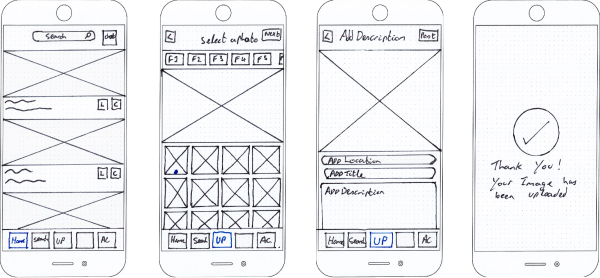 Search
chat
L C
L C
Home Search UP AC
< Select a photo Next
F1 F2 F3 F4 F5 F
Home Search UP AC
< Add Description Post
ADD Location
ADD Title
ADD Description
Home Search UP AC
Thank You!
Your Image has
been uploaded